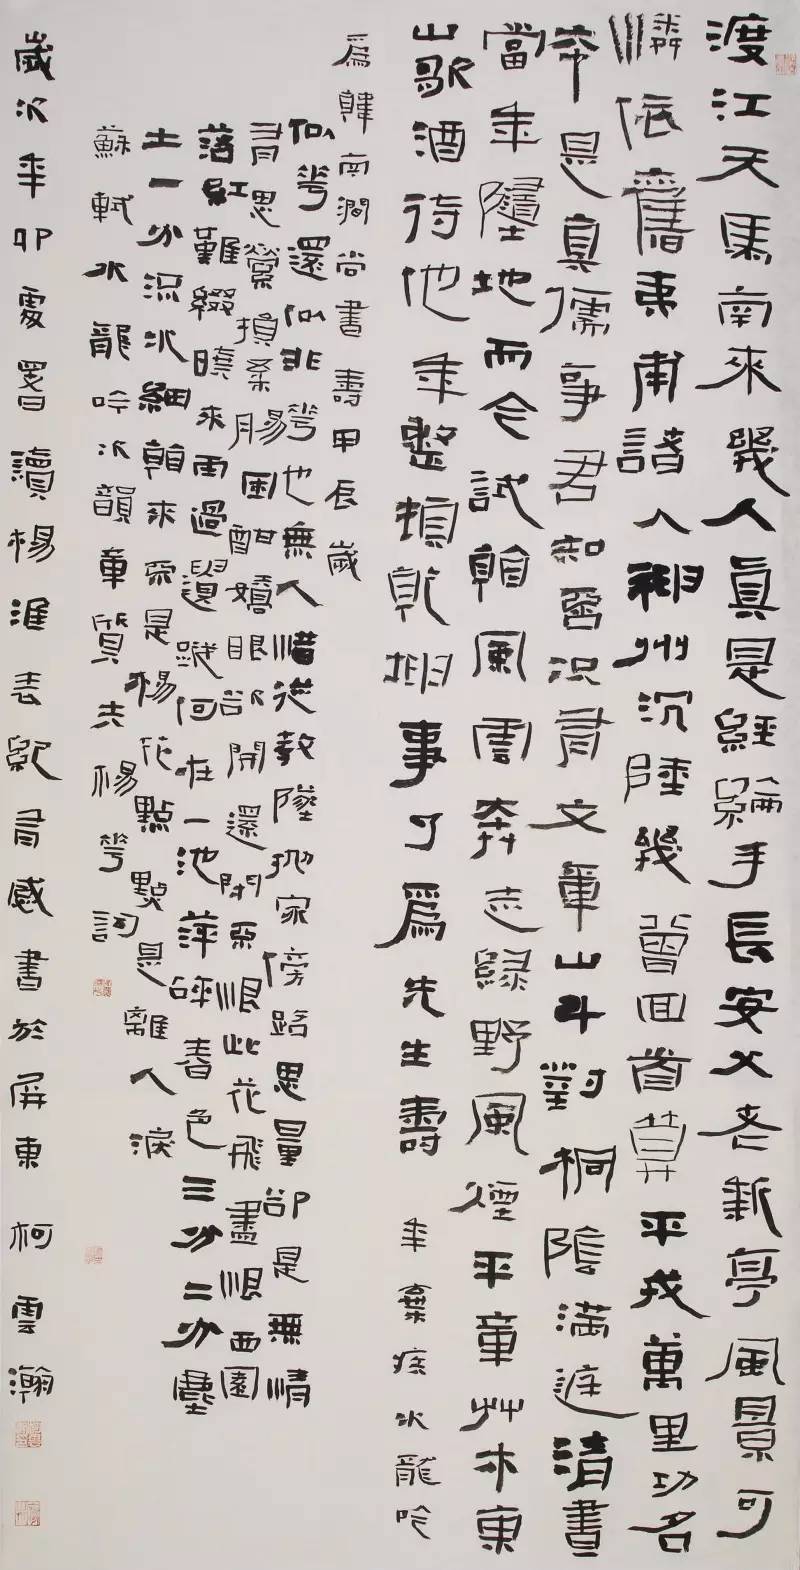 渡江天馬南來幾人眞是經綸手長安父老新亭風景可
憐依舊夷甫諸人神州沉陸幾曾回首算平戎萬里功名
本是真儒事君知否況有文章山斗對桐陰滿庭清晝
當年墮地而今試看風雲奔走綠野風煙平章草木東
山歌酒待他年整頓乾坤事了爲先生壽 辛棄疾水龍吟
爲韓南澗尚書壽甲辰歲
似花還似非花也無人惜從教墜拋家傍路思量卻是無情
有思縈損柔腸困酣嬌眼欲開還閉不恨此花飛盡恨西園
落紅難綴曉來雨過遺蹤何在一池萍碎春色三分二分塵
土一分流水細看來不是楊花點點是離人淚
蘇軾水龍吟次韻章質夫楊花詞
歲次辛卯處暑讀楊淮表紀有感書於屏東 柯雲瀚